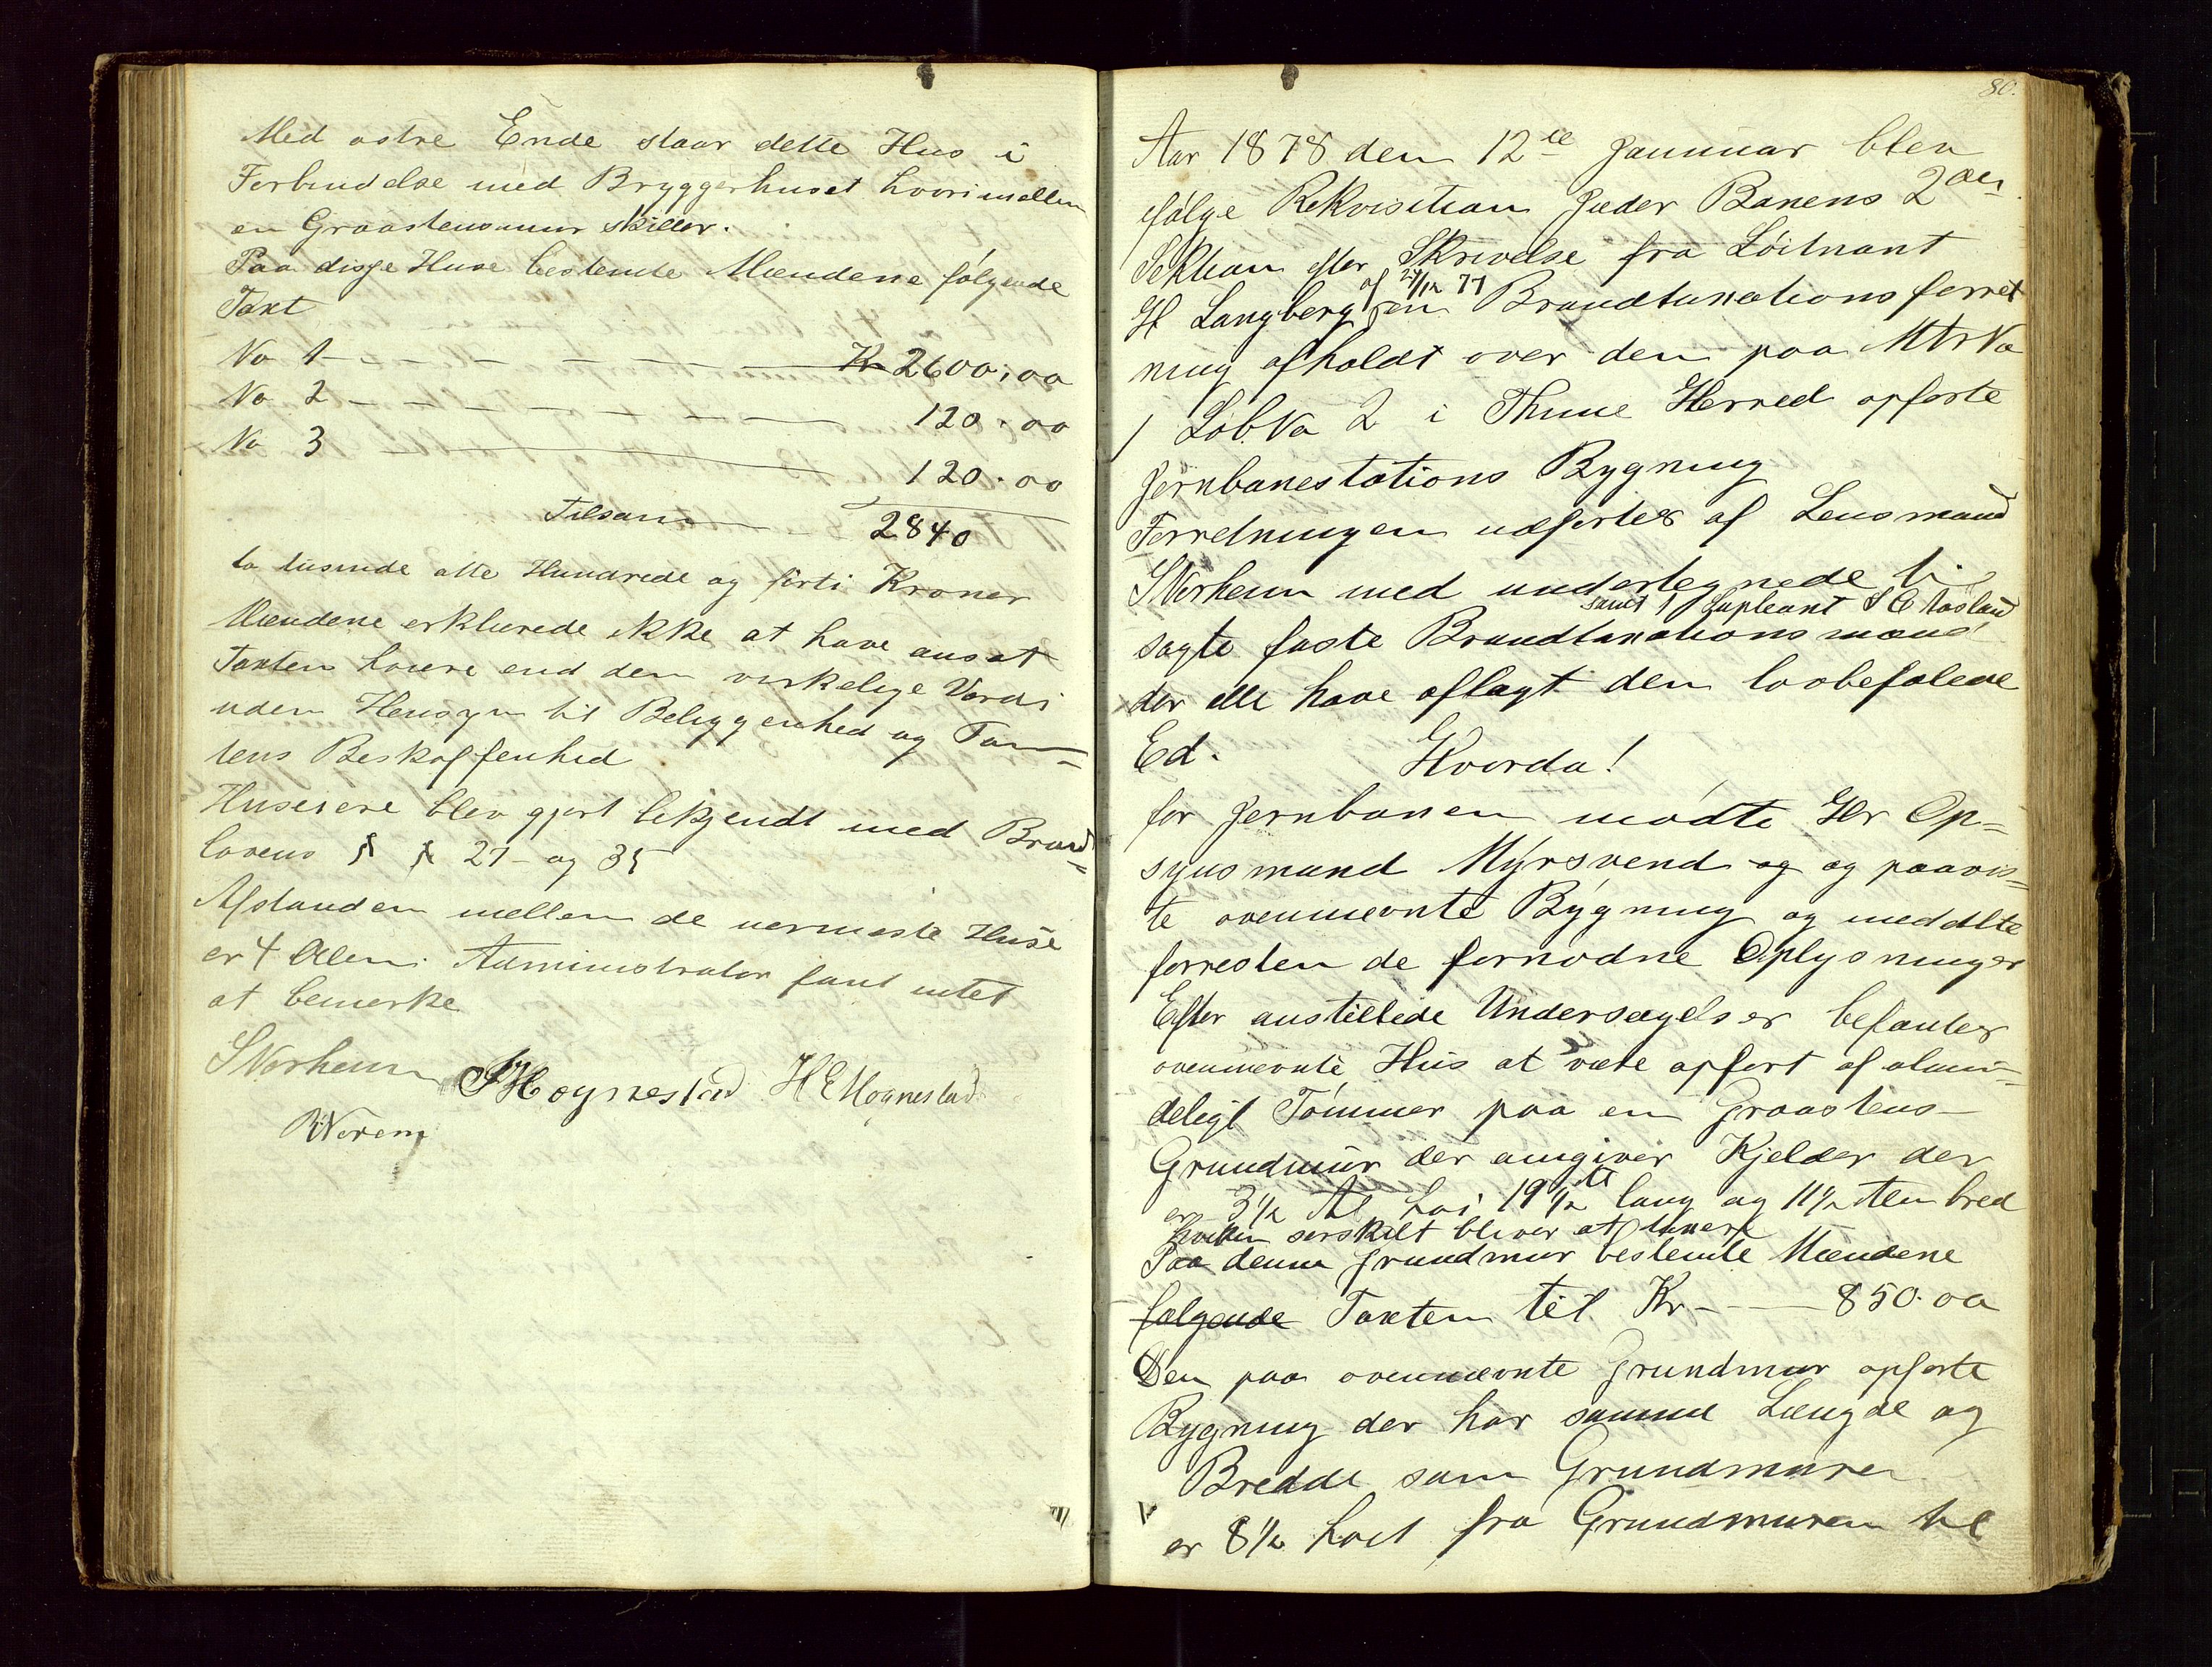 Med østre Ende staar dette Hus i
Forbindelse med Bryggerhuset hvorimellem
en Graastensmur skiller.
Paa disse Huse bestemte Mændene følgende
Taxt
No 1 - - - - - - - Kr 2600,00
No 2 - - - - - - - 120.00
No 3 120.00
Tilsam 2840
to tusinde otte Hundrede og førti Kroner
Mændene erklærede ikke at have ansat
Taxten høiere end den virkelige Værdi
uden Hensyn til Beliggenhed og Tom=
tens Beskaffenhed
Huseiere blev gjort bekjendt med Brand=
lovens § § 27 og 35
Afstanden mellem de nermeste Huse
er 4 Alen. Administrator fant intet
at bemerke
S Norheim P Høynestad H E Høgnestad
R Norem
80.
Aar 1878 den 12te Januar blev
ifølge Rekvisition Jæder Banens 2den
Sektion efter Skrivelse fra Løitnant
af 27/12 77
H Langberg en Brandtaxationsforret
ning afholdt over den paa Mtr No
1 Løb No 2 i Thime Herred opførte
Jernbanestations Bygning
Forretningen udførtes af Lensmand
S Norheim med undertegnede ti
samt 1 Supleant S E Aasland
sagte faste Brandtaxationsmænd
der alle have aflagt den lovbefalede
Ed. Hvorda!
for Jernbanen mødte Hr Op=
synsmand Myrsvend og og paavis=
te ovennevnte Bygning og meddelte
forresten de fornødne Oplysninger
Efter anstillede Undersøgelser befantes
ovennevnte Hus at være opført af almin=
deligt Tømmer paa en Graastens
Grundmur der omgiver Kjelder der
er 3 1/2 Al høi 19 1/2 Al lang og 11 1/2 Alen bred
hvilken serskilt bliver at taxere
Paa denne Grundmur bestemte Mændene
følgende Taxten til Kr - - - 850.00
Den paa ovennevnte Grundmur opførte
Bygning der har samme Længde og
Bredde som Grundmuren
er 8 1/2 høit fra Grundmuren til